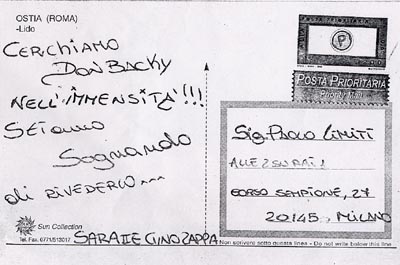 OSTIA (ROMA)
-Lido
CERCHIAMO
DON BACKY
NELL'IMMENSITÀ!!!
STIAMO
SOGNANDO
di RIVEDERLO....
Sun Collection
Tel. Fax. 0771/513017
SARA E GINO ZAPPA
P
POSTA PRIORITARIA
Priority Mail
Sig. PAOLO LIMITI
CORSO SEMPIONE, 27
20145 - MILANO
Non scrivere sotto questa linea - Do not write below this line